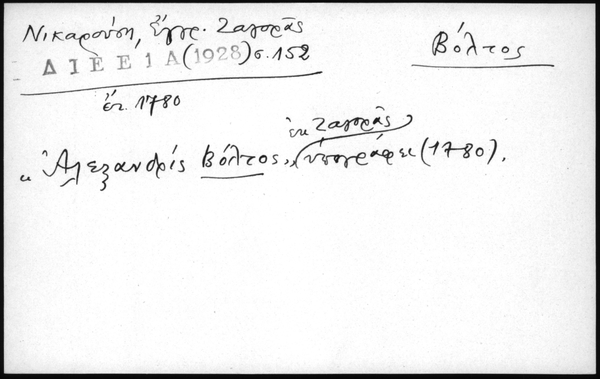 Νικαρούση, Ἔγγρ. Ζαγορᾶς
Βόλτος
ΔΙΕΕ 1 Α (1928) σ. 152
ἔτ. 1780
ἐκ Ζαγορᾶς
"Ἀλεξανδρὶς Βόλτος" ὑπογράφει (1780).